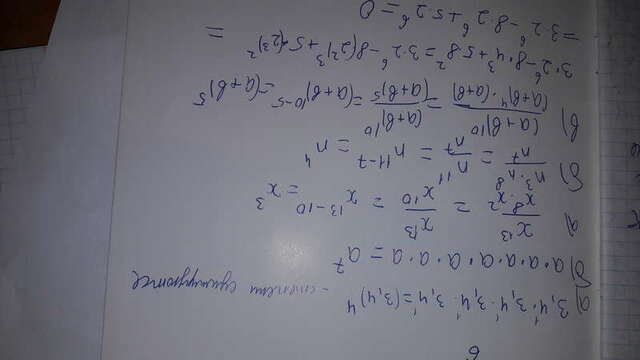 б
а) 3,4¹·3,4¹·3,4¹·3,4¹=(3,4)⁴ - степени суммируются
б) a·a·a·a·a·a·a=a⁷
а) x¹³/(x⁸·x²) = x¹³/x¹⁰ = x¹³⁻¹⁰ = x³
б) (n³·n⁸)/n⁷ = n¹¹/n⁷ = n¹¹⁻⁷ = n⁴
в) (a+b)¹⁰/((a+b)⁴·(a+b)) = (a+b)¹⁰/(a+b)⁵ = (a+b)¹⁰⁻⁵ = (a+b)⁵
3·2⁶-8·4³+5·8²=3·2⁶-8(2²)³+5·(2³)² =
=3·2⁶-8·2⁶+5·2⁶=0